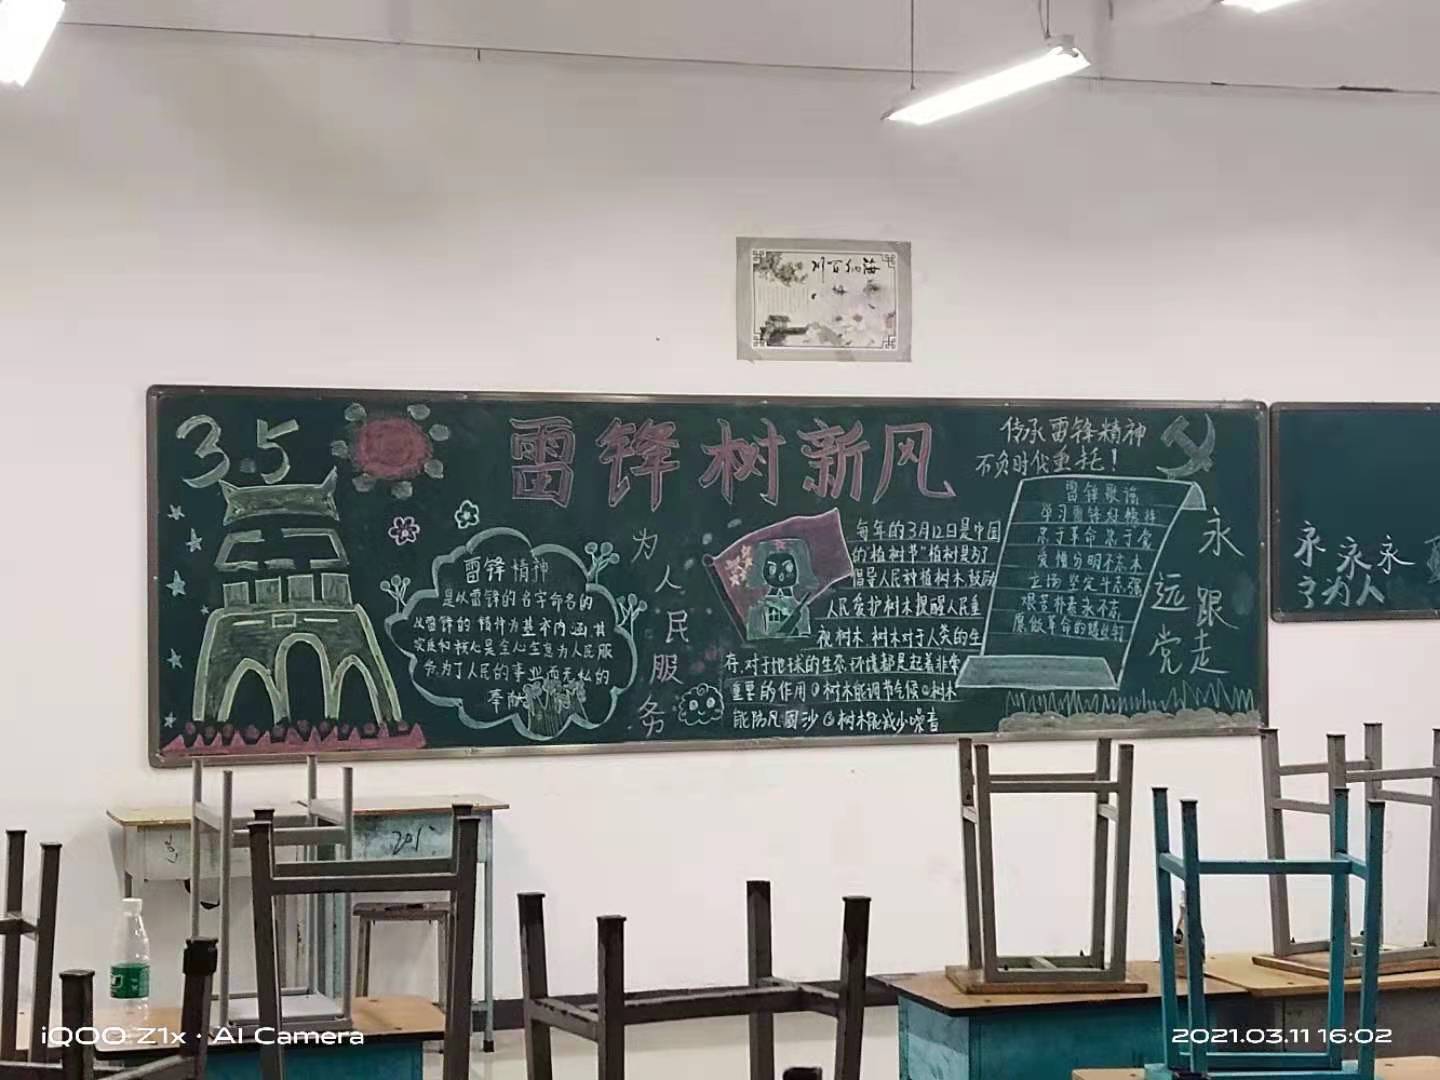 海纳百川
3.5
雷锋树新风
传承雷锋精神
不负时代重托！
雷锋精神
是以雷锋的名字命名的
以雷锋的精神为基本内涵其
实质和核心是全心全意为人民服
务为了人民的事业而无私的
奉献
为人民服务
每年的3月12日是中国
的植树节"植树是为了
倡导人民种植树木鼓励
人民爱护树木提醒人民重
视树木.树木对于人类的生
存.对于地球的生态环境都是起着非常
重要的作用①树木能调节气候②树木
能防风固沙③树木能减少噪音
雷锋歌谣
学习雷锋好榜样
忠于革命忠于党
爱憎分明不忘本
立场坚定斗志强
艰苦朴素永不忘
愿做革命的螺丝钉
永远跟党走
永永永
为人
iQOO Z1x · AI Camera
2021.03.11 16:02